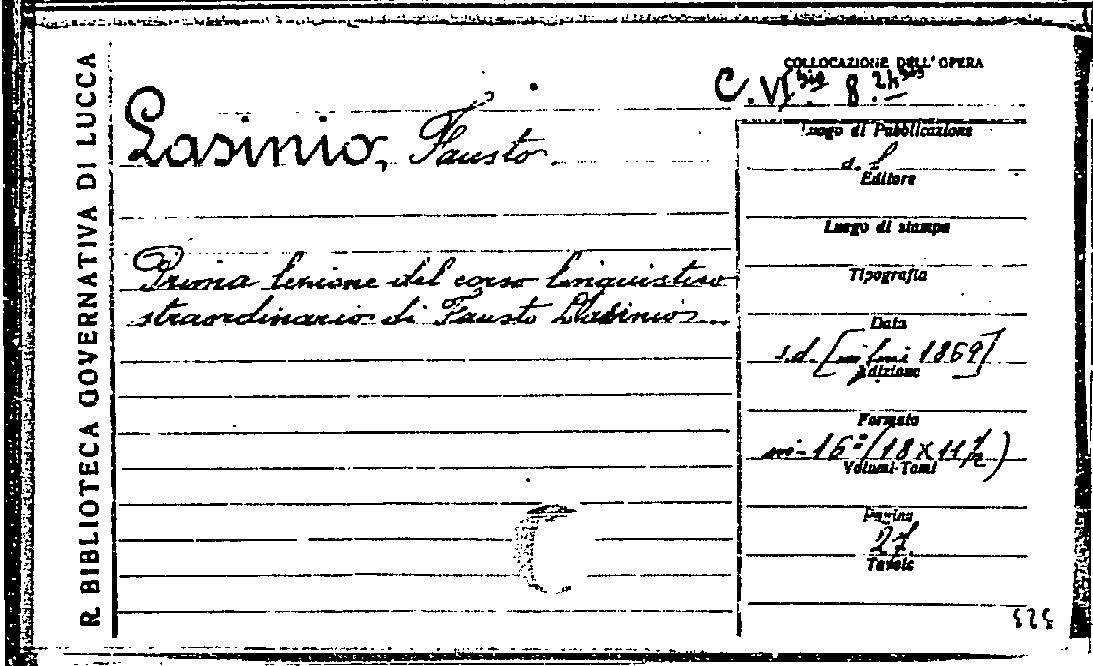 R BIBLIOTECA GOVERNATIVA DI LUCCA
COLLOCAZIONE DELL'OPERA
C. VI bis 8. 24 bis
Lasinio, Fausto
Prima lezione del corso linguistico
straordinario di Fausto Lasinio
Luogo di Pubblicazione
s. l
Editore
Luogo di stampa
Tipografia
Data
s.d. [in fine 1869]
Edizione
Formato
in-16° (18 x 11 1/2)
Volumi-Tomi
Pagine
27.
Tavole
525